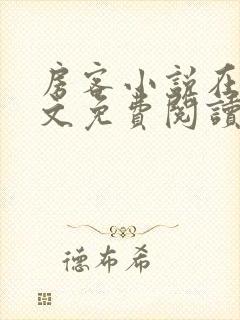 房客小说在
文免費閱讀
德布希